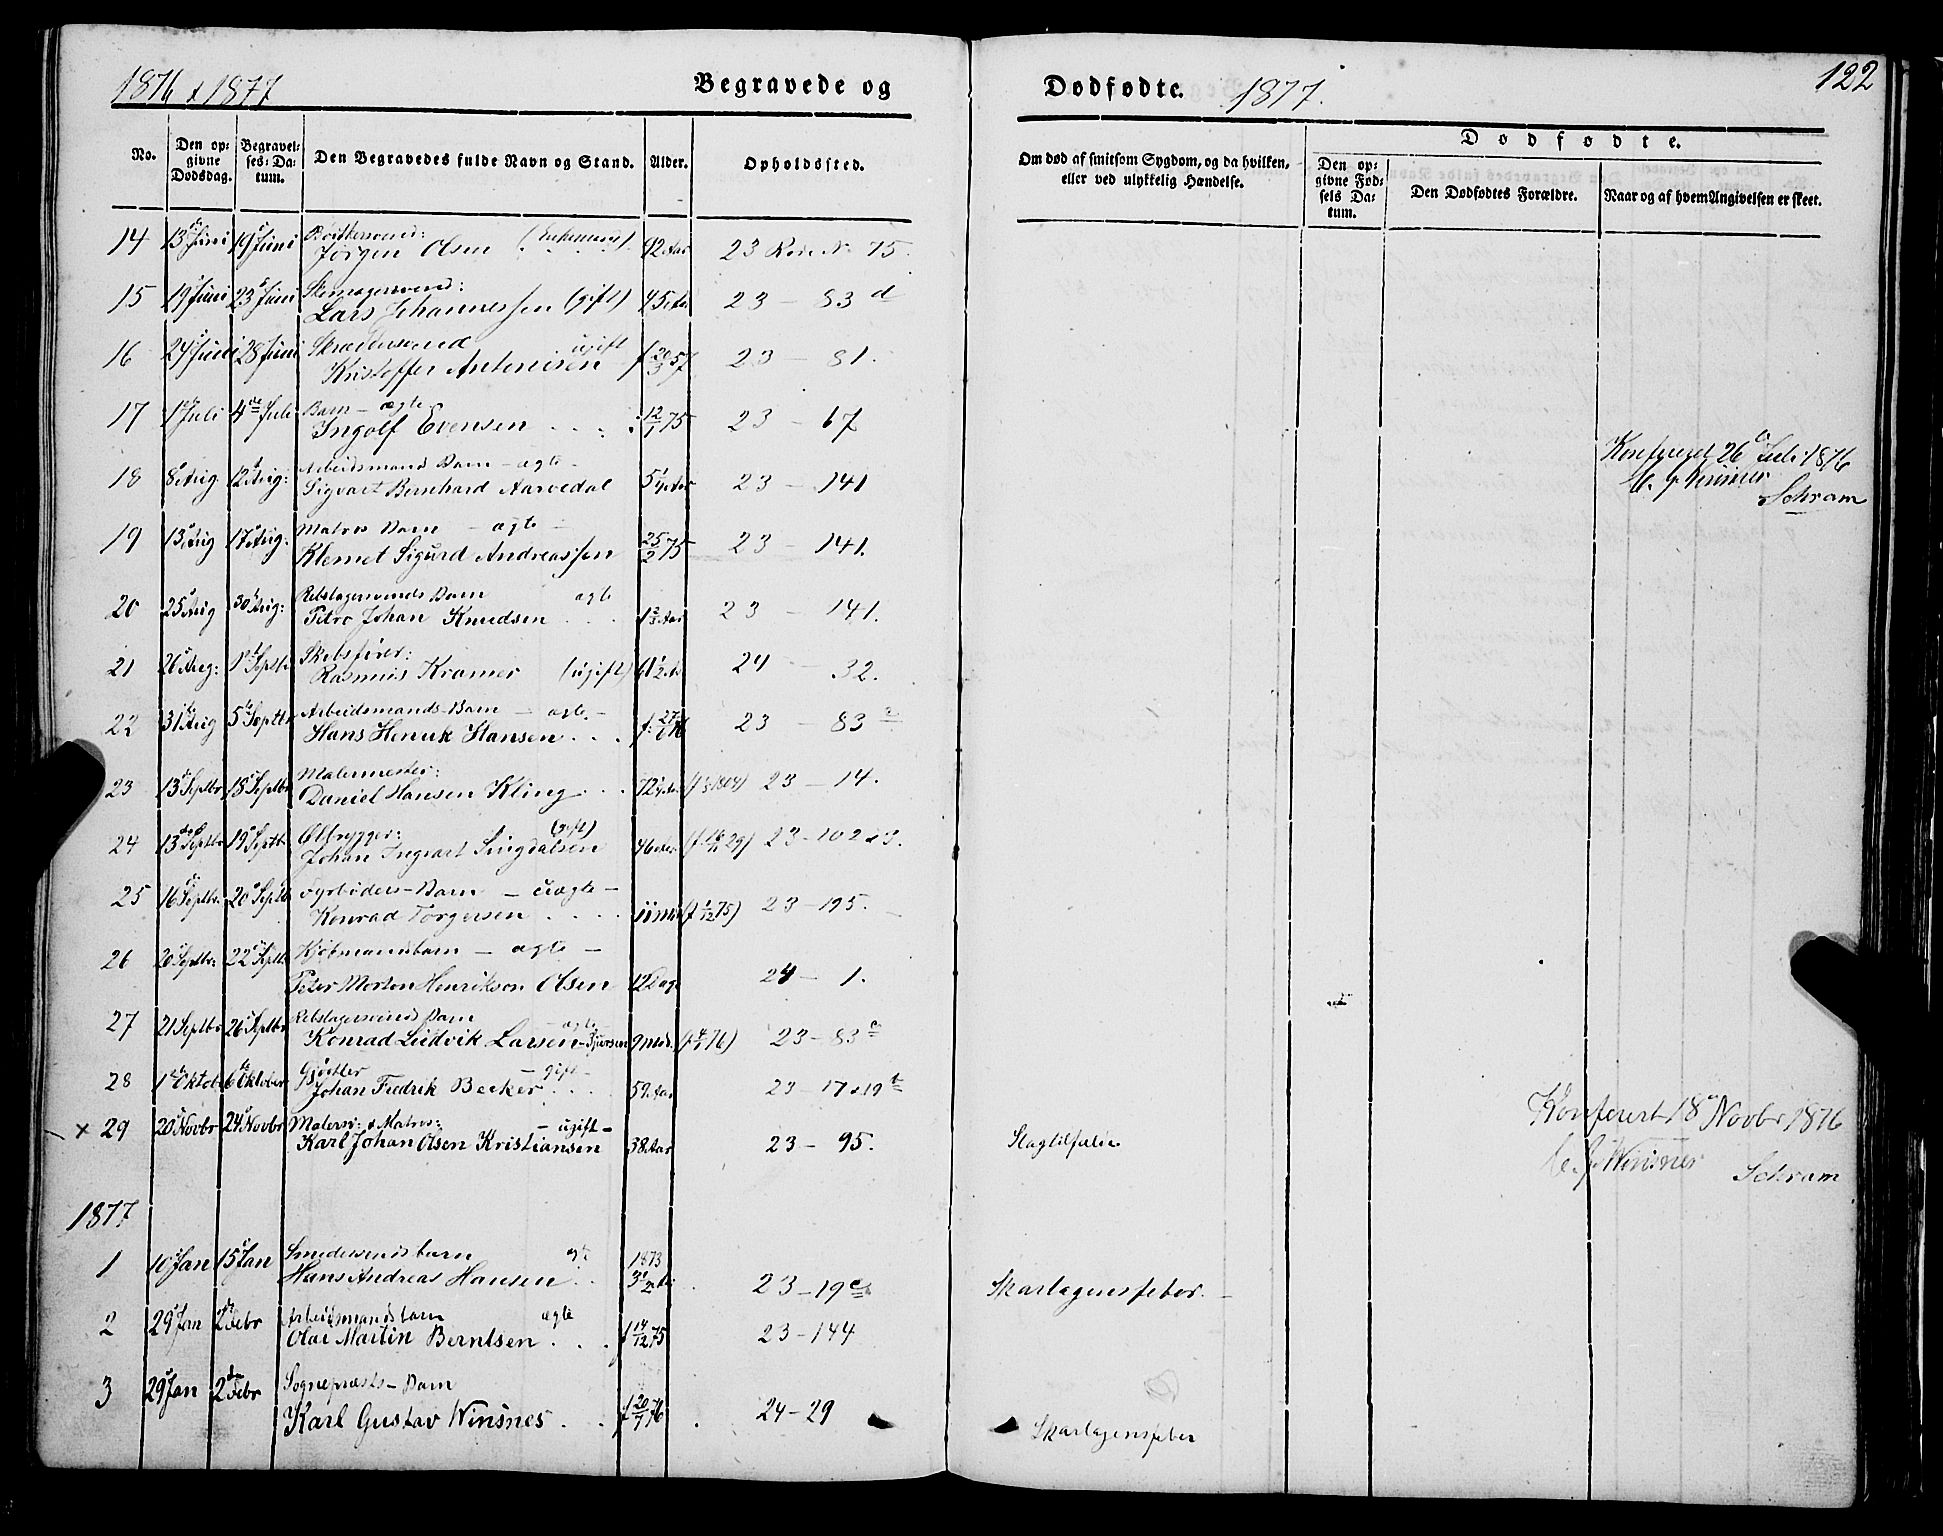 1876 & 1877
Begravede og
Dødfødte.
1877.
122
No.
Den opgivne Dødsdag.
Begravelses-Datum.
Den Begravedes fulde Navn og Stand.
Alder.
Opholdssted.
Om død af smitsom Sygdom, og da hvilken, eller ved ulykkelig Hændelse.
Dødfødte.
Den opgivne Fødsels Datum.
Den Dødfødtes Forældre.
Naar og af hvem Angivelsen er skeet.
14 13 Juni 19 Juni
Jørgen Olsen 92 Aar 23 Rode No 75.
15 19 Juni 23 Juni
Lars Johannessen (gift) 45 Aar 23 – 83 d
16 24 Juni 28 Juni ugift
Kristoffer Antonisen f 20/3 57 23 – 81.
17 1 Juli 4de Juli Barn – ægte
Ingolf Evensen 12/1 75 23 – 67
18 8 Aug 12 Aug: Arbeidsmand Barn – ægte –
Sigvart Bernhard Aarvedal 23 – 141
19 13 Aug 17 Aug: Matros Barn – ægte –
Klemet Sigurd Andreassen 25/2 75 23 – 141.
20 25 Aug 30 Aug: Rebslagersvends Barn ægte
Petro Johan Knudsen 23 – 141.
21 26 Aug: 1 Septbr Skibsfører:
Rasmus Kramer (ugift) 61 1/2 Aar 24 – 32.
22 31 Aug 5 Septbr Arbeidsmands-Barn – ægte –
Hans Henrik Hansen 23 – 83
23 13 Septbr 18 Septbr Malermester:
Daniel Hansen Kling 23 – 14.
24 13 Septbr 19 Septbr Ølbrygger: (gift)
Johan Ingvart Singdalsen 46 Aar 23 – 102
25 16 Septbr. 20 Septbr Fyrbøders-Barn – uægte –
Konrad Torgersen 11 Md (f 1/12 75) 23 – 195.
26 20 Septbr: 22 Septbr Kjøbmandsbarn – ægte –
Peter Morten Henrikson Olsen 12 Dage 24 – 1.
27 21 Septbr 26 Septbr Rebslagersvends Barn – ægte
Konrad Ludvik Larsen 9 Md. 23 – 83
28 1 Oktob 6 Oktober Gjørtler – gift –
Johan Fredrik Becker 59 Aar 23 – 17 & 19
× 29 20 Novbr 24 Novbr Malersv: & Matros: – ugift –
Karl Johan Olsen Kristiansen 38 Aar 23 – 95. Slagtilfælde
Konfereret 26 Juli 1876
Schram
Konfereret 18 Novbr 1876
C. J. Winsnes
Schram
1877
1 10 Jan 15 Jan Smedesvends barn ægte 1873
Hans Andreas Hansen 23 – 19 Skarlagensfeber. –
2 29 Jan 2 Febr Arbeidsmandsbarn ægte
Olai Martin Berntsen f 14/12 75 23 – 144
3 29 Jan 2 Febr Sognepræsts – Barn
Karl Gustav Winsnes f 20/7 76 24 – 29 Skarlagensfeber